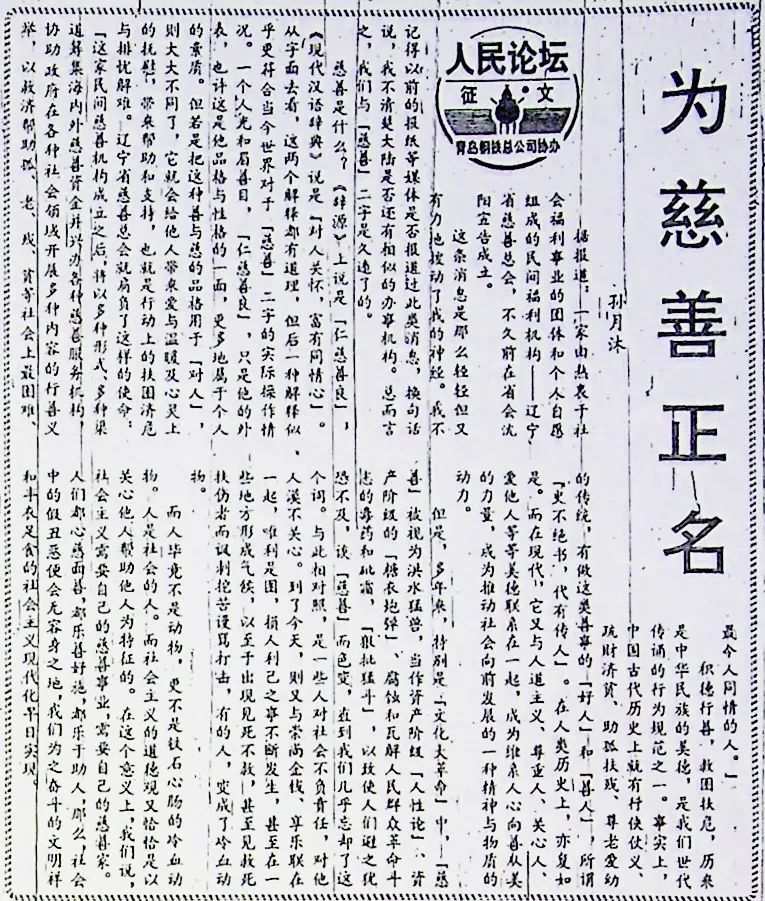 为慈善正名
孙月沐
人民论坛
征文
青岛钢铁总公司协办
据报道：一家由热衷于社
会福利事业的团体和个人自愿
组成的民间福利机构——辽宁
省慈善总会，不久前在省会沈
阳宣告成立。
这条消息是那么轻轻但又
有力地拨动了我的神经。我不
记得以前的报纸等媒体是否报道过此类消息，换句话
说，我不清楚大陆是否还有相似的办事机构。总而言
之，我们与「慈善」二字是久违了的。
慈善是什么？《辞源》上说是「仁慈善良」，
《现代汉语辞典》说是「对人关怀，富有同情心」。
从字面去看，这两个解释都有道理，但后一种解释似
乎更符合当今世界对于「慈善」二字的实际操作情
况。一个人光和眉善目，「仁慈善良」，只是他的外
表，也许这是他品格与性格的一面，更多地属于个人
的素质。但若是把这种善与慈的品格用于「对人」，
则大大不同了，它就会给他人带来爱与温暖及心灵上
的抚慰，带来帮助和支持，也就是行动上的扶困济危
与排忧解难。辽宁省慈善总会就肩负了这样的使命：
「这家民间慈善机构成立之后，将以多种形式、多种渠
道筹集海内外慈善资金并兴办各种慈善服务机构，
协助政府在各种社会领域开展多种内容的行善义
举，以救济帮助孤、老、残、贫等社会上最困难、
最令人同情的人。」
积德行善，救困扶危，历来
是中华民族的美德，是我们世代
传诵的行为规范之一。事实上，
中国古代历史上就有行侠仗义、
疏财济贫、助孤扶残、尊老爱幼
的传统，有做这类善事的「好人」和「善人」，所谓
「史不绝书，代有传人」。在人类历史上，亦复如
是。而在现代，它又与人道主义、尊重人、关心人、
爱他人等等美德联系在一起，成为维系人心向善从美
的力量，成为推动社会向前发展的一种精神与物质的
动力。
但是，多年来，特别是「文化大革命」中，「慈
善」被视为洪水猛兽，当作资产阶级「人性论」、资
产阶级的「糖衣炮弹」、腐蚀和瓦解人民群众革命斗
志的毒药和砒霜，「狠批猛斗」，以致使人们避之犹
恐不及，谈「慈善」而色变，直到我们几乎忘却了这
个词。与此相对照，是一些人对社会不负责任，对他
人漠不关心。到了今天，则又与崇尚金钱、享乐联在
一起，唯利是图，损人利己之事不断发生，甚至在一
些地方形成气候，以至于出现见死不救，甚至见救死
扶伤者而讽刺挖苦谩骂打击，有的人，变成了冷血动
物。
而人毕竟不是动物，更不是铁石心肠的冷血动
物。人是社会的人。而社会主义的道德观又恰恰是以
关心他人帮助他人为特征的。在这个意义上，我们说，
社会主义需要自己的慈善事业，需要自己的慈善家。
人们都心慈面善，都乐善好施，都乐于助人，那么，社会
中的假丑恶便会无容身之地，我们为之奋斗的文明祥
和丰衣足食的社会主义现代化早日实现。